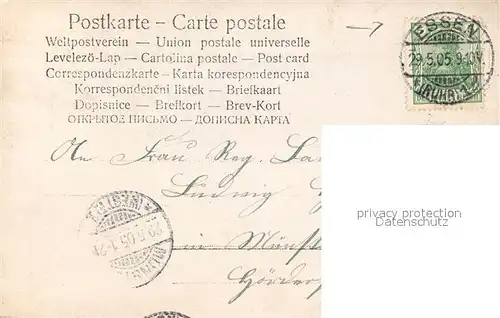 Postkarte – Carte postale
Weltpostverein — Union postale universelle
Levelező-Lap — Cartolina postale — Post card
Correspondenzkarte — Karta korespondencyjna
Korrespondenční listek — Briefkaart
Dopisnice — Brefkort — Brev-Kort
ОТКРЫТОЕ ПИСЬМО — ДОПИСНА КАРТА
ESSEN
29.5.05.9-10V.
(RUHR)
An Frau Reg.
Ludwig
in Münst
29.5.05.1-2N
privacy protection
Datenschutz